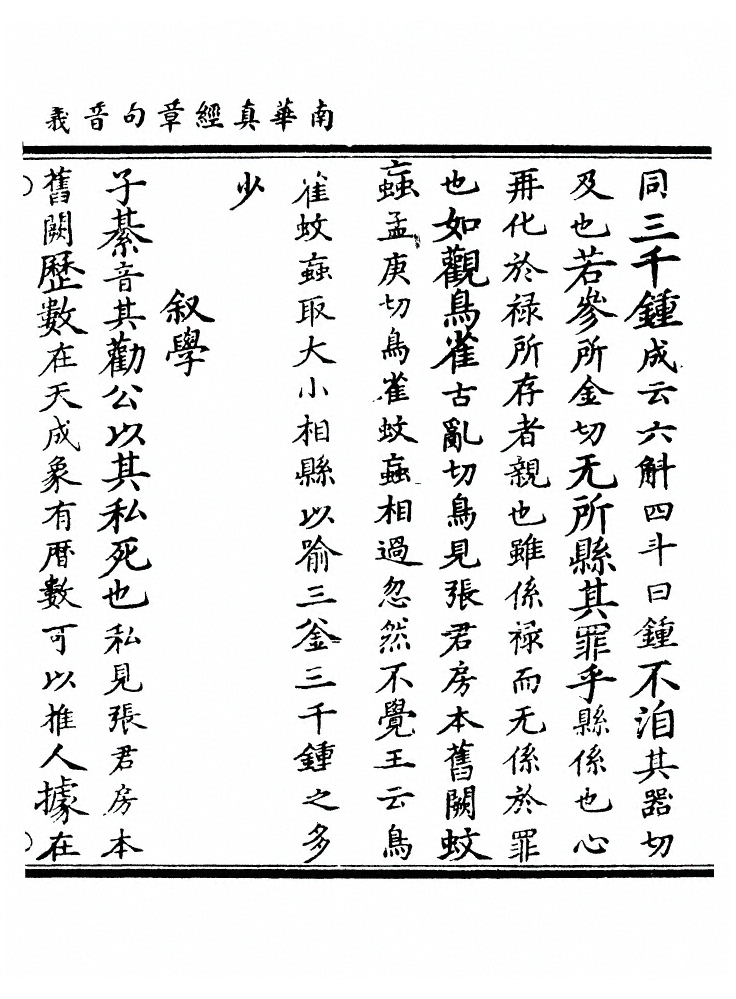 南華真經章句音義
同三千鍾成云六斛四斗曰鍾不洎其器切
及也若參所金切无所縣其罪乎縣係也心
再化於禄所存者親也雖係禄而无係於罪
也如觀鳥雀古亂切鳥見張君房本舊闕蚊
蝱孟庚切鳥雀蚊蝱相過忽然不覺王云鳥
雀蚊蝱取大小相縣以喻三釡三千鍾之多
少
叙學
子綦音其勸公以其私死也私見張君房本
舊闕歷數在天成象有曆數可以推人據在